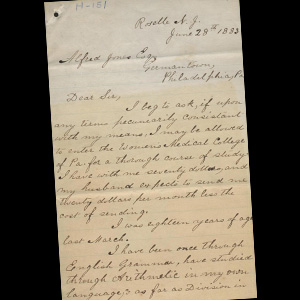 H-151
Roselle N. J.
June 28th 1883
Alfred Jones Esq.
Germantown,
Philadelphia, Pa
Dear Sir,
I beg to ask, if upon
any terms pecuniarily consistant
with my means, I may be allowed
to enter the Womens Medical College
of Pa. for a thorough curse of study?
I have with me seventy dolls, and
my husband expects to send me
twenty dollars per month less the
cost of sending.
I was eighteen years of age
last March.
I have been once through
English Grammar, have studied
through Arithmetic in my own
language, & as far as Division in